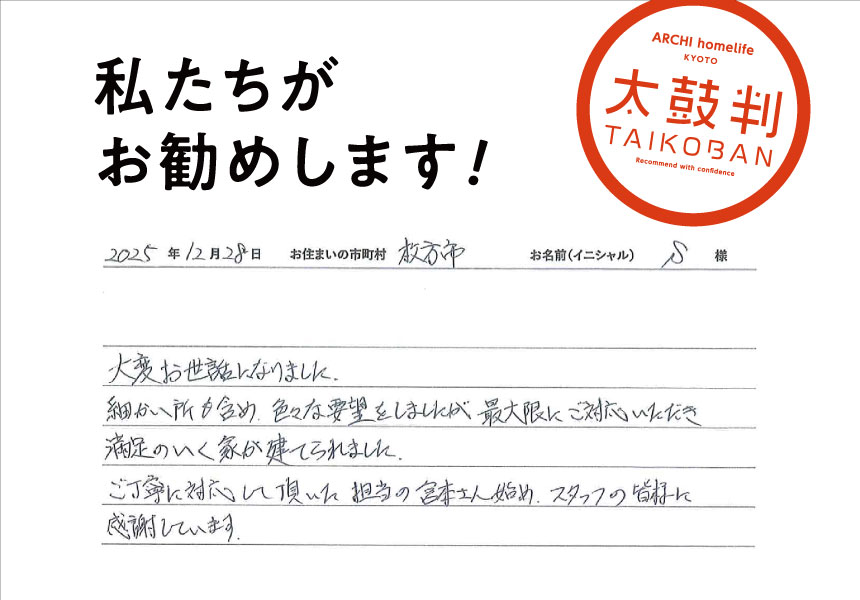 私たちが
お勧めします!
ARCHI homelife
KYOTO
太鼓判
TAIKOBAN
Recommend with confidence
2025 年 12 月 28 日 お住まいの市町村 枚方市 お名前(イニシャル) S 様
大変お世話になりました.
細かい所も含め、色々な要望をしましたが 最大限にご対応いただき
満足のいく家が建てられました.
ご丁寧に対応して頂いた 担当の宮本さん始め、スタッフの皆様に
感謝しています.